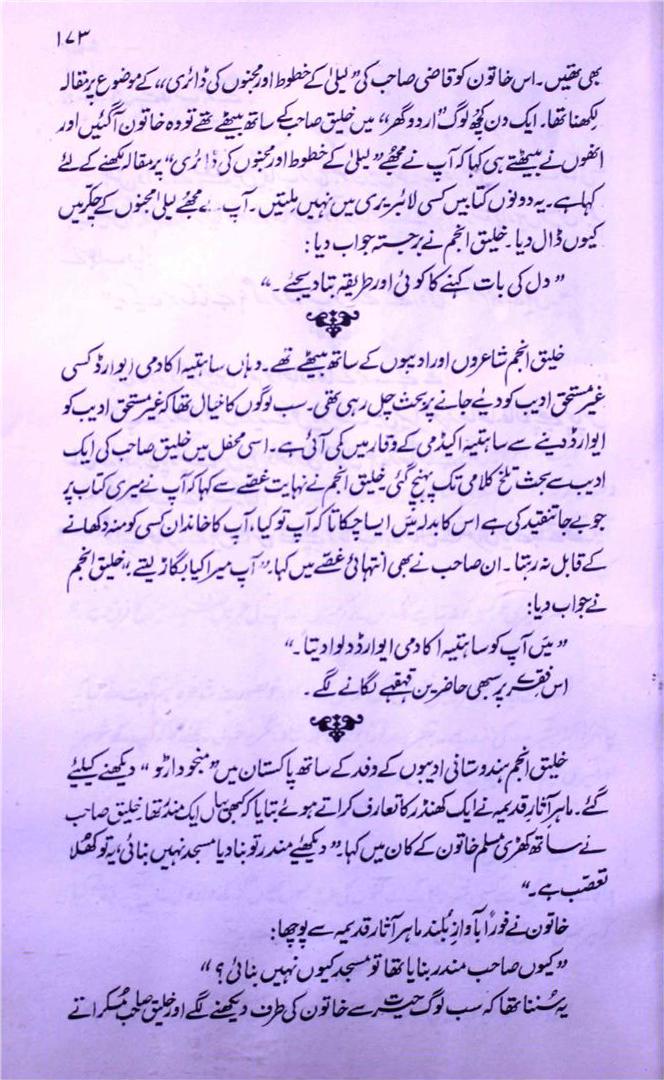 ۱۷۳
بھی تھیں۔ اس خاتون کو قاضی صاحب کی ”لیلیٰ کے خطوط اور مجنوں کی ڈائری“ کے موضوع پر مقالہ
لکھنا تھا۔ ایک دن کچھ لوگ ”اردو گھر“ میں خلیق صاحب کے ساتھ بیٹھے تھے تو وہ خاتون آگئیں اور
انھوں نے بیٹھتے ہی کہا کہ آپ نے مجھے ”لیلیٰ کے خطوط اور مجنوں کی ڈائری“ پر مقالہ لکھنے کے لئے
کہا ہے۔ یہ دونوں کتابیں کسی لائبریری میں نہیں ملتیں۔ آپ نے مجھے لیلیٰ مجنوں کے چکّر میں
کیوں ڈال دیا۔ خلیق انجم نے برجستہ جواب دیا:
”دل کی بات کہنے کا کوئی اور طریقہ بتا دیجئے۔“
خلیق انجم شاعروں اور ادیبوں کے ساتھ بیٹھے تھے۔ وہاں ساہتیہ اکادمی ایوارڈ کسی
غیر مستحق ادیب کو دیے جانے پر بحث چل رہی تھی۔ سب لوگوں کا خیال تھا کہ غیر مستحق ادیب کو
ایوارڈ دینے سے ساہتیہ اکیڈمی کے وقار میں کمی آئی ہے۔ اسی محفل میں خلیق صاحب کی ایک
ادیب سے بحث تلخ کلامی تک پہنچ گئی۔ خلیق انجم نے نہایت غصّے سے کہا کہ آپ نے میری کتاب پر
جو بے جا تنقید کی ہے اس کا بدلہ میں ایسا چکاتا کہ آپ تو کیا، آپ کا خاندان کسی کو منہ دکھانے
کے قابل نہ رہتا۔ ان صاحب نے بھی انتہائی غصّے میں کہا: ”آپ میرا کیا بگاڑ لیتے“، خلیق انجم
نے جواب دیا:
”میں آپ کو ساہتیہ اکادمی ایوارڈ دلوا دیتا۔“
اس فقرے پر سبھی حاضرین قہقہے لگانے لگے۔
خلیق انجم ہندوستانی ادیبوں کے وفد کے ساتھ پاکستان میں ”منجودارڑو“ دیکھنے کیلئے
گئے۔ ماہر آثارِ قدیمہ نے ایک کھنڈر کا تعارف کراتے ہوئے بتایا کہ کبھی یہاں ایک مندر تھا۔ خلیق صاحب
نے ساتھ کھڑی مسلم خاتون کے کان میں کہا۔ ”دیکھئے مندر تو بنا دیا مسجد نہیں بنائی، یہ تو کھُلا
تعصّب ہے۔“
خاتون نے فوراً بآوازِ بلند ماہر آثارِ قدیمہ سے پوچھا:
”کیوں صاحب مندر بنایا تھا تو مسجد کیوں نہیں بنائی؟“
یہ سُننا تھا کہ سب لوگ حیرت سے خاتون کی طرف دیکھنے لگے اور خلیق صاحب مُسکراتے